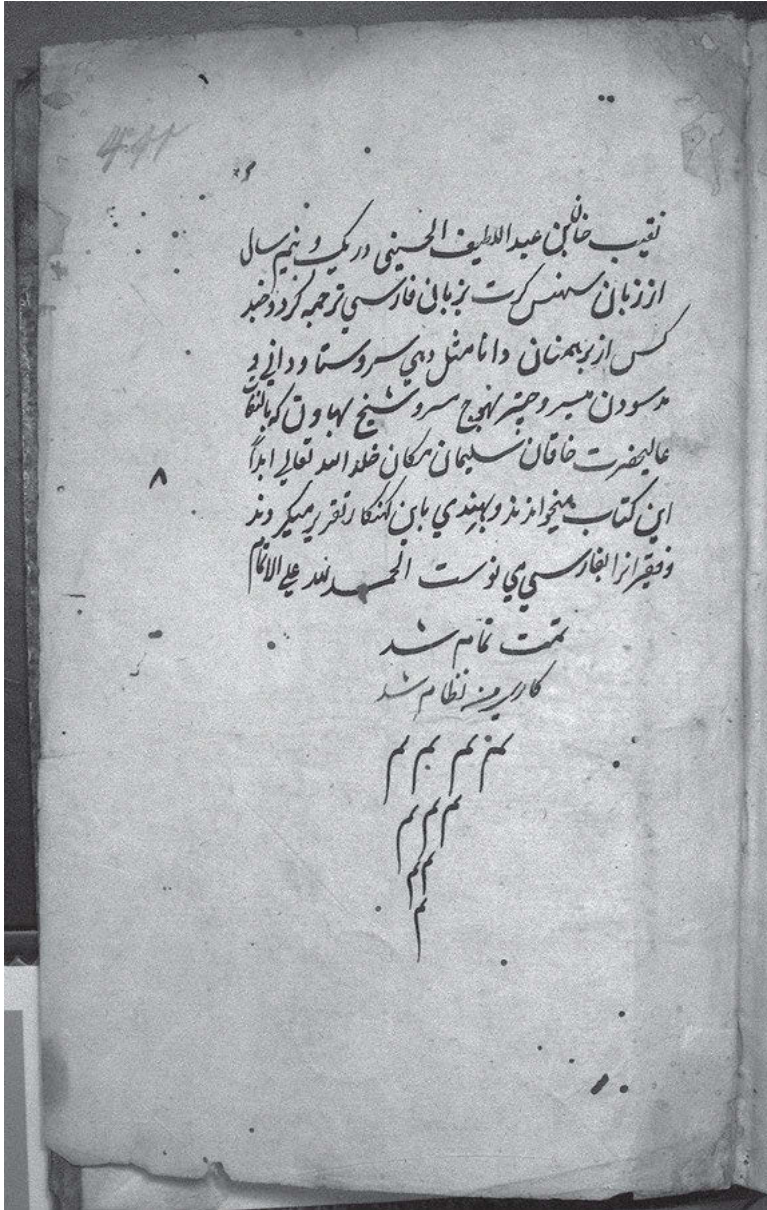 نقیب خان بن عبد اللطیف الحسینی در یک و نیم سال
از زبان سهنس کرت بزبانی فارسی ترجمه کرد و چند
کس از برهمنان دانا مثل دبی
مدسودن مسر و چتر بهوج مسرو شیخ بهاون که بالتفات
عالیحضرت خاقان سلیمان مکان خلد الله تعالی ابداً
این کتاب میخواندند و بهندی باین کنهکار تقریر میکردند
و فقیر انرا بفارسی می نوست الحمد لله علی الاتمام
تمت تمام شد
کار من نظام شد
م م م م
م م م
م م
م
۸